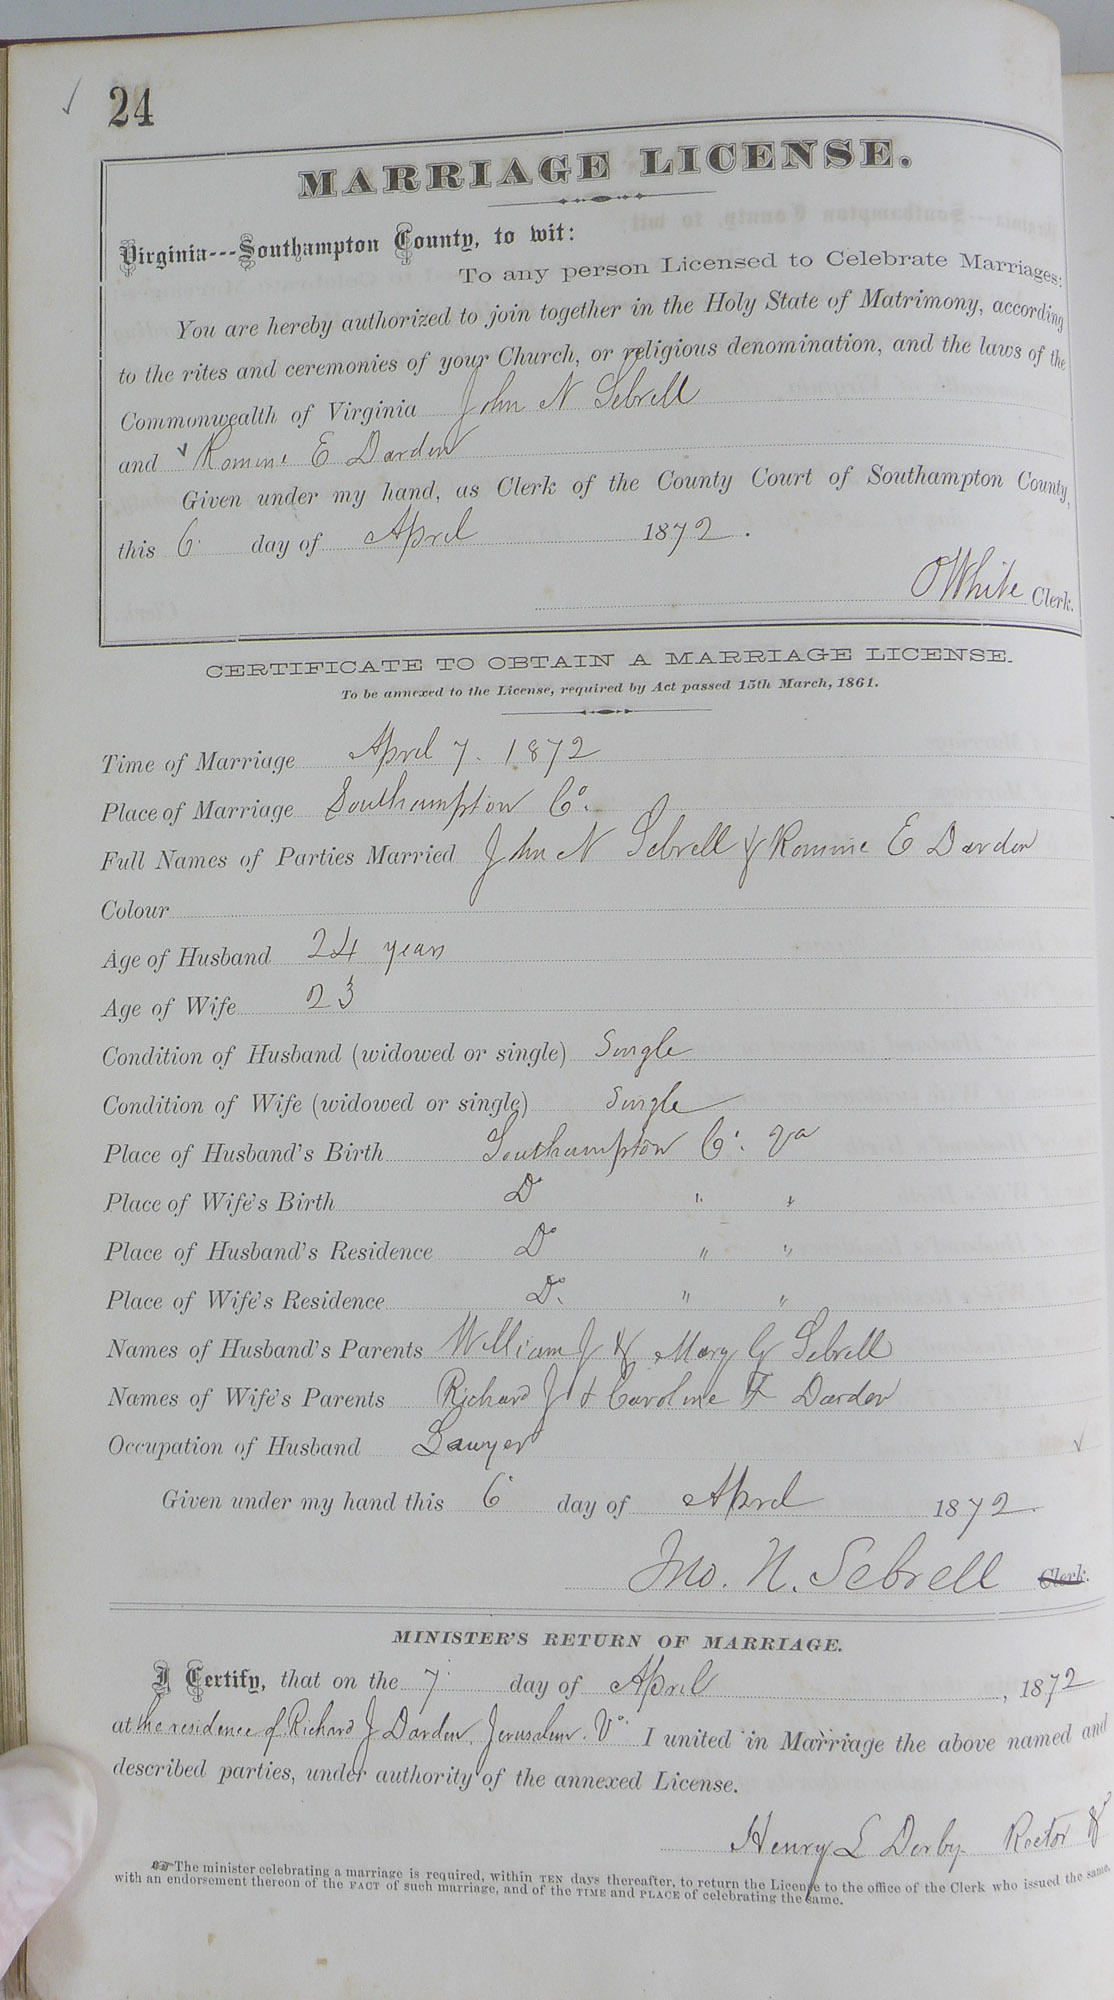 24
MARRIAGE LICENSE.
Virginia---Southampton County, to wit:
To any person Licensed to Celebrate Marriages:
You are hereby authorized to join together in the Holy State of Matrimony, according
to the rites and ceremonies of your Church, or religious denomination, and the laws of the
Commonwealth of Virginia John N Sebrell
and Romine E Darden
Given under my hand, as Clerk of the County Court of Southampton County,
this 6 day of April 1872.
O White Clerk.
CERTIFICATE TO OBTAIN A MARRIAGE LICENSE.
To be annexed to the License, required by Act passed 15th March, 1861.
Time of Marriage April 7. 1872
Place of Marriage Southampton Co.
Full Names of Parties Married John N Sebrell & Romine E Darden
Colour
Age of Husband 24 years
Age of Wife 23
Condition of Husband (widowed or single) Single
Condition of Wife (widowed or single) Single
Place of Husband's Birth Southampton Co. Va
Place of Wife's Birth Do " "
Place of Husband's Residence Do " "
Place of Wife's Residence Do. " "
Names of Husband's Parents William J & Mary G Sebrell
Names of Wife's Parents Richard J & Caroline F Darden
Occupation of Husband Lawyer
Given under my hand this 6 day of April 1872.
Jno. N. Sebrell Clerk.
MINISTER'S RETURN OF MARRIAGE.
I Certify, that on the 7 day of April, 1872
at the residence of Richard J Darden, Jerusalem. Va I united in Marriage the above named and
described parties, under authority of the annexed License.
Henry L Derby. Rector &c
☞ The minister celebrating a marriage is required, within TEN days thereafter, to return the License to the office of the Clerk who issued the same,
with an endorsement thereon of the FACT of such marriage, and of the TIME and PLACE of celebrating the same.